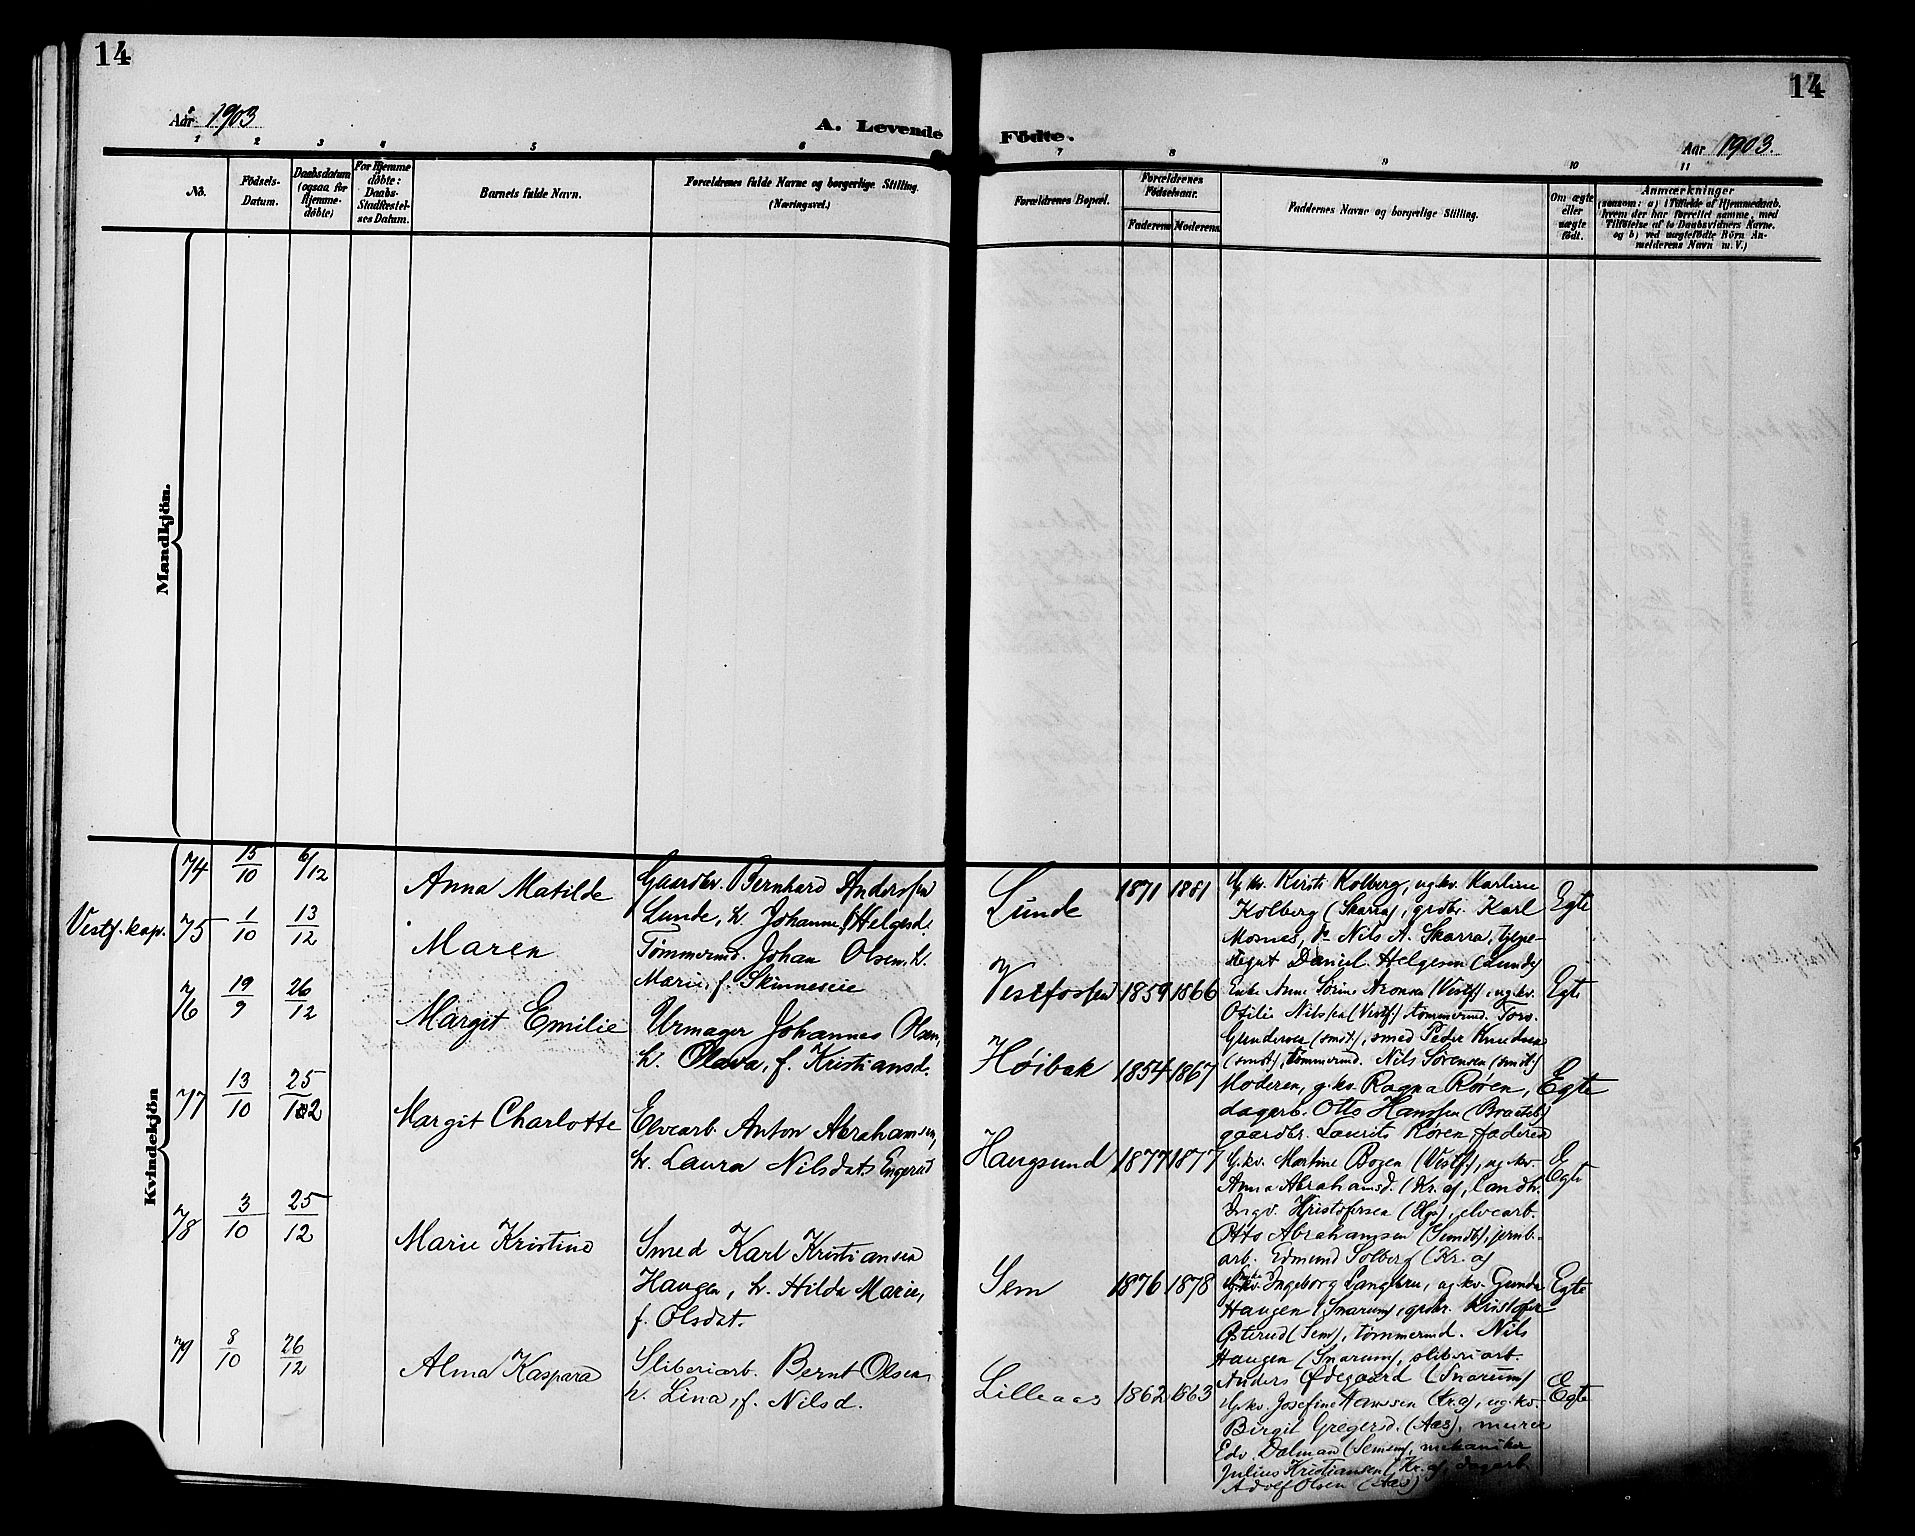 14
Aar 1903
A. Levende
1 2 3 4 5 6
No.
Födsels-
Datum.
Daabsdatum
(ogsaa for
Hjemme-
døbte)
For Hjemme
døbte:
Daabs-
Stadfæstel-
ses Datum.
Barnets fulde Navn.
Forældrenes fulde Navne og borgerlige Stilling.
(Næringsvei.)
Mandkjön.
Kvindekjön
74 15/10 6/12
Anna Matilde
Gaardbr. Bernhard Anderssen
Lunde, h. Johanne Helgesd.
Vestf. kap. 75 1/10 13/12
Maren
Tømmermd. Johan Olsen. h.
Marie, f. Skinneseie
76 19/9 26/12
Margit Emilie
Urmager Johannes Olsen,
h. Olava, f. Kristiansd.
77 13/10 25/12
Margit Charlotte
Elvearb. Anton Abrahamsen,
h. Laura Nilsdats Engerud
78 3/10 25/12
Marie Kristine
Smed Karl Kristiansen
Haugen, h. Hilda Marie,
f. Olsdat.
79 8/10 26/12
Alma Kaspara
Sliberiarb. Bernt Olsen,
h. Lina, f. Nilsd.
14
Födte.
Aar 1903.
7 8 9 10 11
Forældrenes Bopæl.
Forældrenes
Födselsaar.
Faderens Moderens
Faddernes Navne og borgerlige Stilling.
Om ægte
eller
uægte
født.
Anmærkninger
(saasom: a) i Tilfælde af Hjemmedaab,
hvem der har forrettet samme, med
Tilføielse af to Daabsvidners Navne.
og b) ved uægtefødte Börn An-
melderens Navn m. V.)
Lunde 1871 1881
G.kv. Kirsti Kolberg, ug.kv. Karline
Kolberg (Skarra), grdbr. Karl
Mosnes, Nils A. Skarra, tjene-
stegut Daniel Helgesen (Lunde)
Egte
Vestfossen 1859 1866
Enke Anne Sørine Aronsen (Vestf.), ug.kv.
Otilie Nilssen (Vestf.) tømmermd. Torv.
Gundersen (smst), smed Peder Knudsen
(smst), tømmermd. Nils Sørensen (smst)
Egte
Høibak 1854 1867
Moderen, g.kv. Ragna Røren,
dagarb. Otto Hanssen (Braateb)
gaardbr. Laurits Røren, faderen
Egte
Haugsund 1877 1877
G.kv. Martine Bogen (Vestf.), ug.kv.
Anna Abrahamsd. (Kr.a), landh.
Ingv. Kristofersen (Hgs), elvearb.
Otto Abrahamsen (Sundb), jernb.
arb. Edmund Solberg (Kr.a)
Egte
Sem 1876 1878
Ingeborg Langebru, ug.kv. Gunda
Haugen (Snarum), grdbr. Kristofer
Østerud (Sem), tømmermd. Nils
Haugen (Snarum), sliberiarb.
Anders Ødegaard (Snarum)
Egte
Lilleaas 1862 1863
G.kv. Josefine Hanssen (Kr.a), ug.kv.
Birgit Gregersd. (Aas), murer
Edv. Dalman (Semsm), mekaniker
Julius Kristiansen (Kr.a), dagarb.
Adolf Olsen (Aas)
Egte